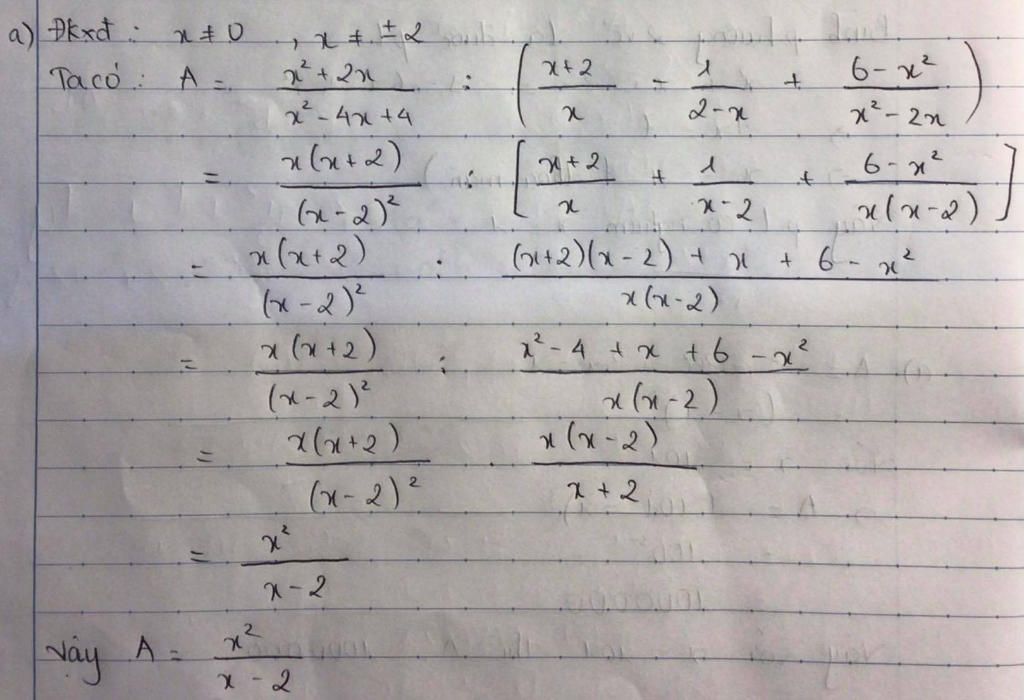 a) Đkxđ : x ≠ 0 , x ≠ ± 2
Ta có : A = (x² + 2x)/(x² - 4x + 4) : ( (x+2)/x - 1/(2-x) + (6-x²)/(x² - 2x) )
= x(x+2)/(x-2)² : [ (x+2)/x + 1/(x-2) + (6-x²)/(x(x-2)) ]
= x(x+2)/(x-2)² : ((x+2)(x-2) + x + 6 - x²)/(x(x-2))
= x(x+2)/(x-2)² : (x² - 4 + x + 6 - x²)/(x(x-2))
= x(x+2)/(x-2)² . x(x-2)/(x+2)
= x²/(x-2)
Vậy A = x²/(x-2)